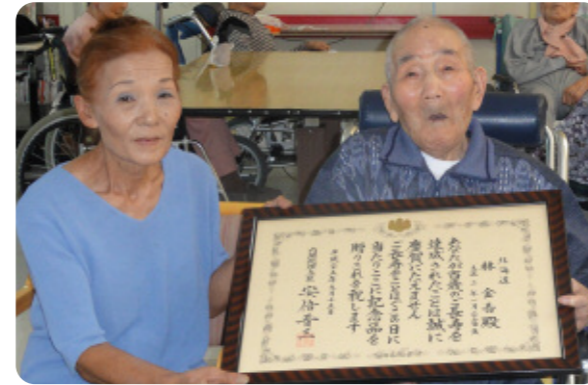 北海道
林 金吾殿
あなたが百歳のご長寿を
達成されたことは誠に
慶賀にたえません
ご長寿をことほぐる日に
当たりここに記念品を
贈りこれを祝します
平成二十五年九月十五日
内閣総理大臣 安倍晋三